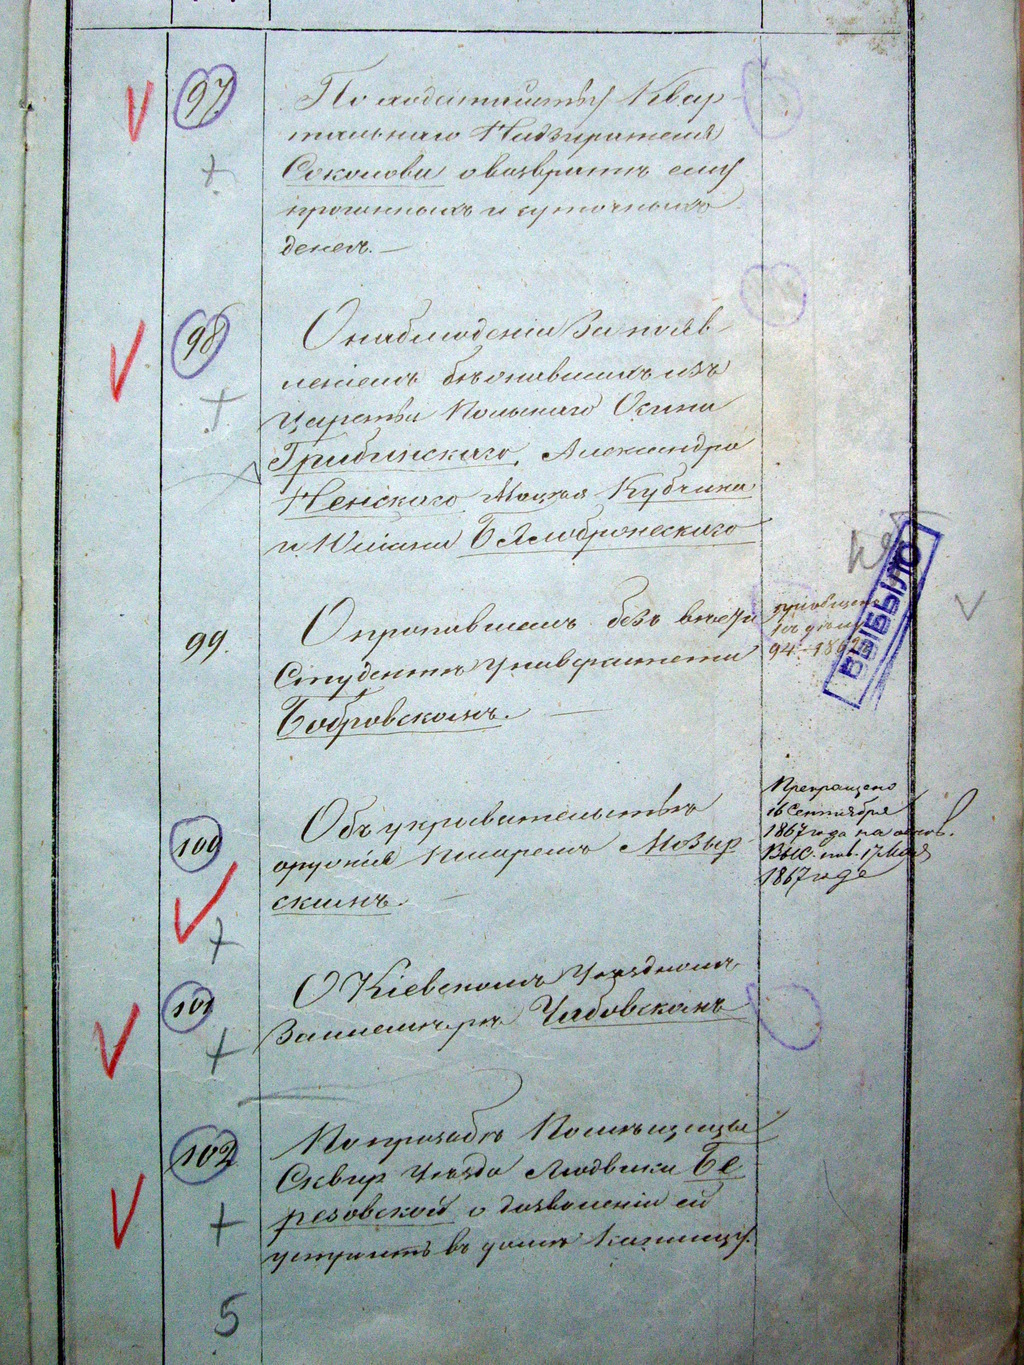 97
По ходатайству Квар-
тальнаго Надзирателя
Соколова о возвратѣ ему
прогонныхъ и суточныхъ
денегъ.—
98
О наблюденіи за появ-
леніемъ бѣжавшихъ изъ
Царства Польскаго Осипа
Грибинскаго, Александра
Ненскаго, Мацея Кубчика
и Юліана Бялобржескаго
99.
О пропавшемъ безъ вѣсти
Студентѣ Университета
Бобровскомъ. —
пріобщено
къ дѣлу
94-
нѣтъ
ВЫБЫЛО
100
Объ укрывательствѣ
оружія писаремъ Мозыр-
скимъ. —
Прекращено
16 Сентября
1867 года на основ.
Выс. пов. 17 Мая
1867 года
101
О Кіевскомъ Уѣздномъ
Землемѣрѣ Чабовскомъ
102
По прозьбѣ Помѣщицы
Сквир. Уѣзда Людвики Бе-
резовской о дозволеніи ей
устроить въ домѣ каплицу.
5